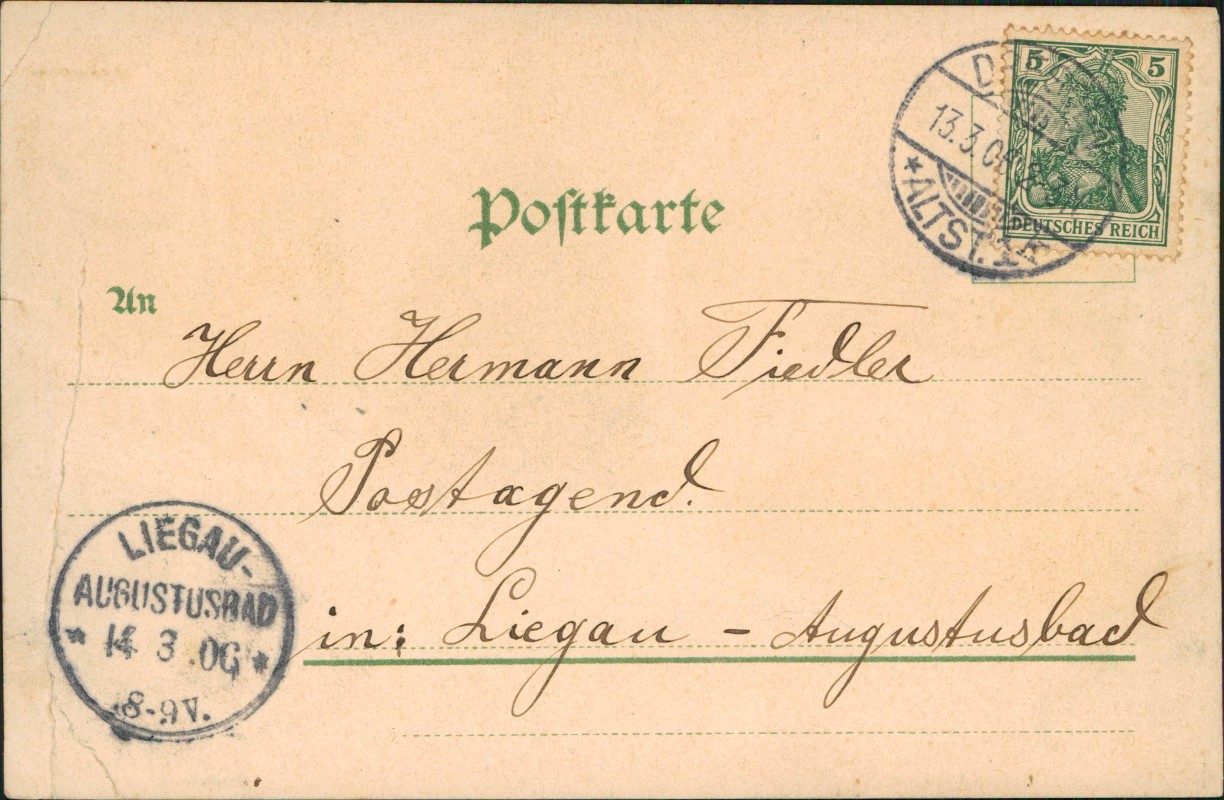 5 5
DEUTSCHES REICH
13.3.06
* ALTST. 1
Postkarte
An
Herrn Hermann Fiedler
Postagend.
in: Liegau - Augustusbad
LIEGAU-
AUGUSTUSBAD
* 14 3 .06 *
8-9V.